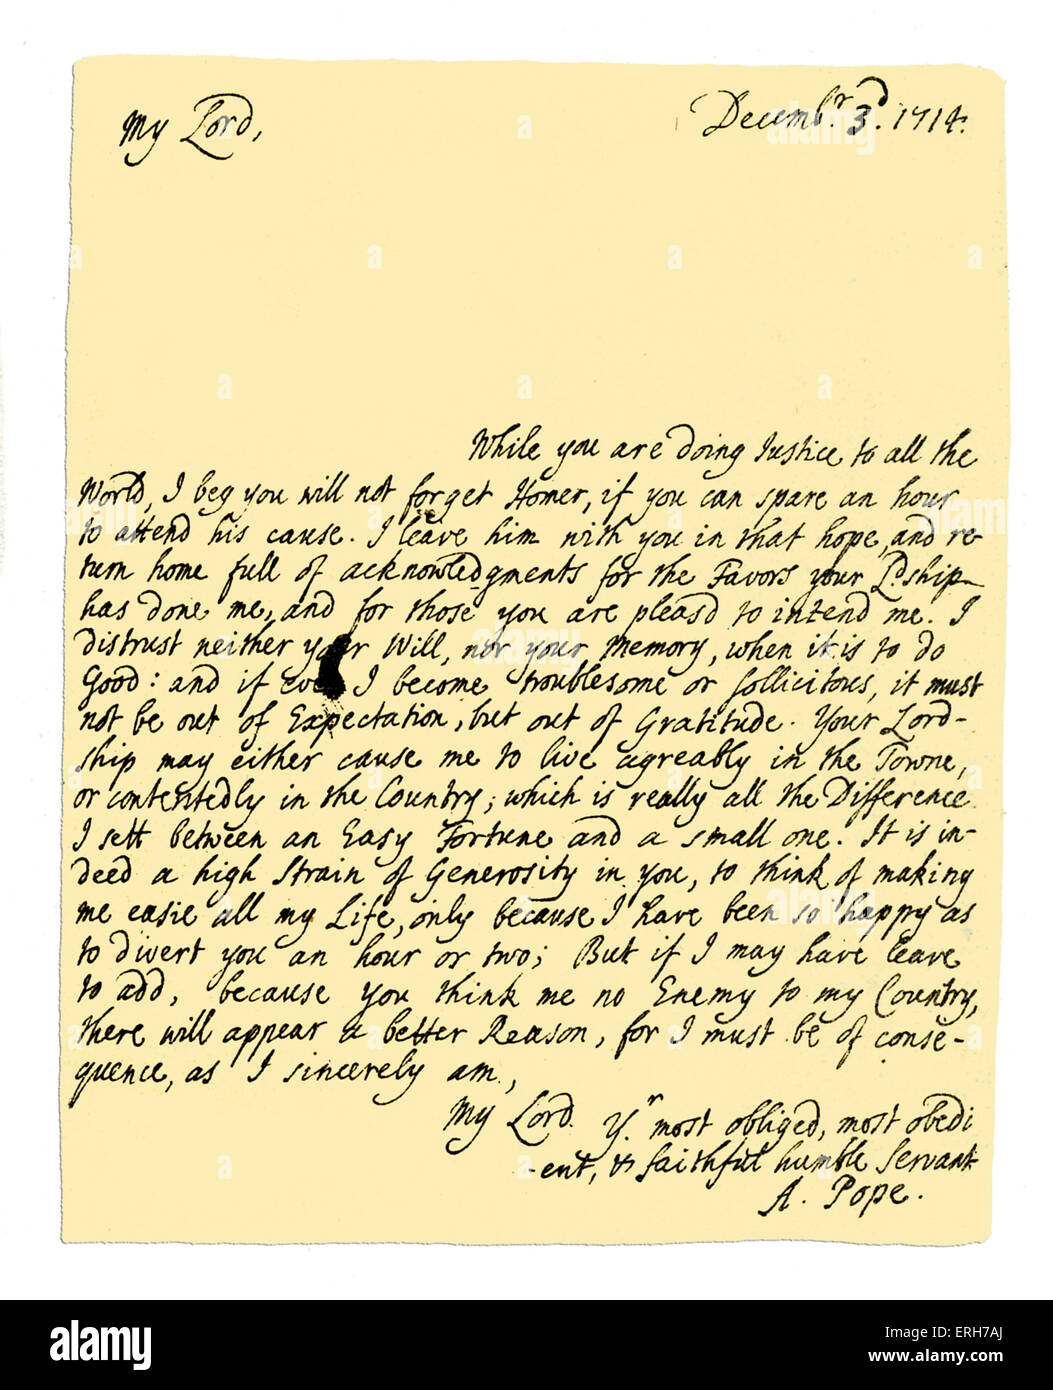 My Lord,
Decembr. 3d. 1714.
While you are doing Justice to all the
World, I beg you will not forget Homer, if you can spare an hour
to attend his cause. I leave him with you in that hope, and re-
turn home full of acknowledgments for the Favors your Ldship
has done me, and for those you are pleasd to intend me. I
distrust neither your Will, nor your Memory, when it is to do
Good: and if ever I become troublesome or sollicitous, it must
not be out of Expectation, but out of Gratitude. Your Lord-
ship may either cause me to live agreably in the Towne,
or contentedly in the Country; which is really all the Difference
I sett between an Easy Fortune and a small one. It is in-
deed a high Strain of Generosity in you, to think of making
me easie all my Life, only because I have been so happy as
to divert you an hour or two; But if I may have leave
to add, because you think me no Enemy to my Country,
there will appear a better Reason, for I must be of conse-
quence, as I sincerely am,
My Lord. Yr. most obliged, most obedi
-ent, & faithful humble Servant
A. Pope.
alamy
Image ID: ERH7AJ
www.alamy.com